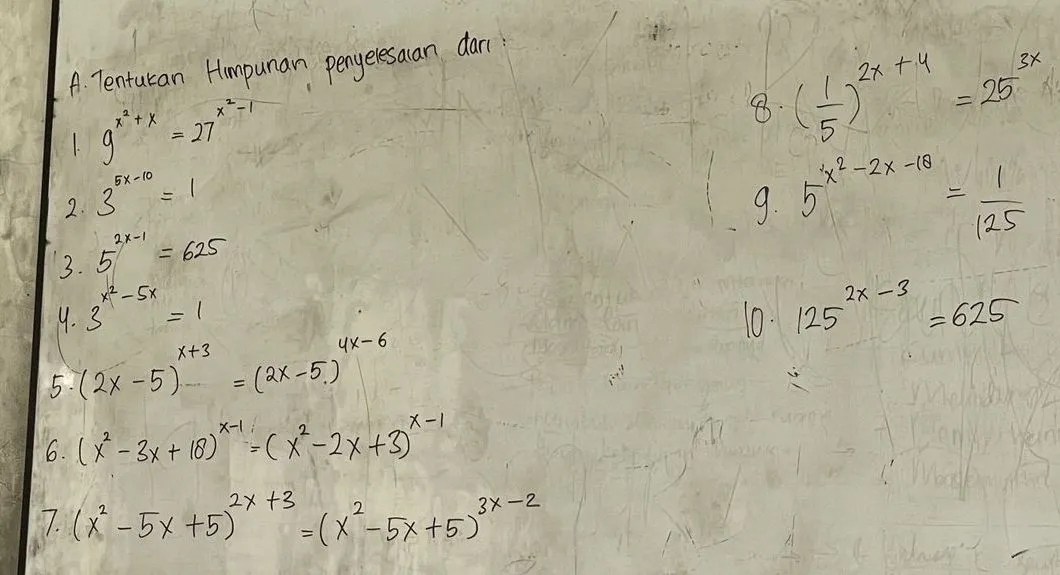 A. Tentukan Himpunan penyelesaian dari :
1. 9^(x²+x) = 27^(x²-1)
2. 3^(5x-10) = 1
3. 5^(2x-1) = 625
4. 3^(x²-5x) = 1
5. (2x-5)^(x+3) = (2x-5)^(4x-6)
6. (x²-3x+18)^(x-1) = (x²-2x+3)^(x-1)
7. (x²-5x+5)^(2x+3) = (x²-5x+5)^(3x-2)
8. (1/5)^(2x+4) = 25^(3x)
9. 5^(x²-2x-18) = 1/125
10. 125^(2x-3) = 625